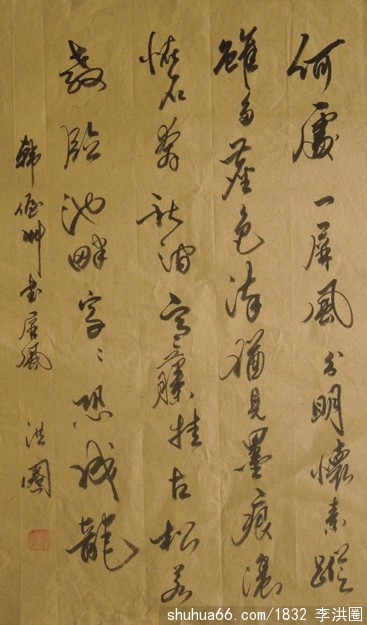 何處一屏風分明懷素蹤
雖多塵色染猶見墨痕濃
恠石奔秋澗寒藤挂古松若
教臨池畔字〻恐成龍
韓偓艸書屏風 洪圈
shuhua66.com/1832 李洪圈